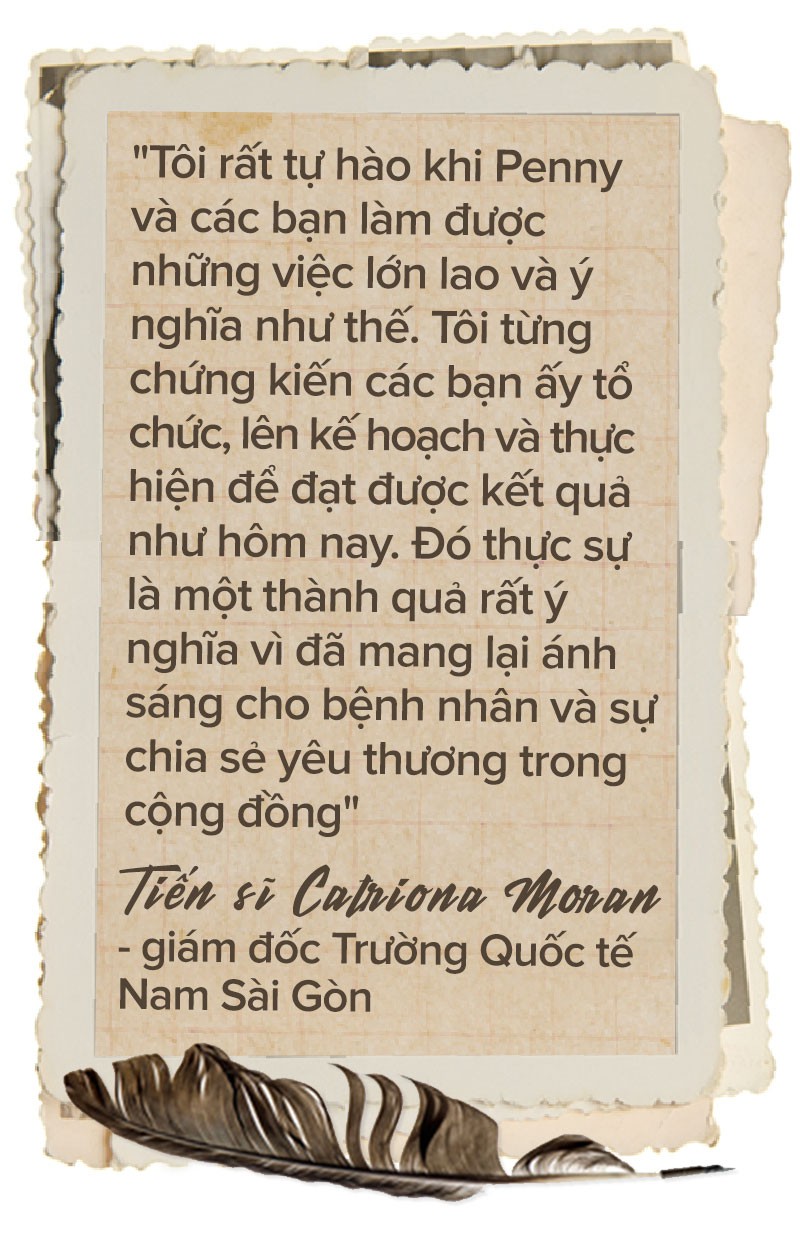 "Tôi rất tự hào khi Penny
và các bạn làm được
những việc lớn lao và ý
nghĩa như thế. Tôi từng
chứng kiến các bạn ấy tổ
chức, lên kế hoạch và thực
hiện để đạt được kết quả
như hôm nay. Đó thực sự
là một thành quả rất ý
nghĩa vì đã mang lại ánh
sáng cho bệnh nhân và sự
chia sẻ yêu thương trong
cộng đồng"
Tiến sĩ Catriona Moran
- giám đốc Trường Quốc tế
Nam Sài Gòn